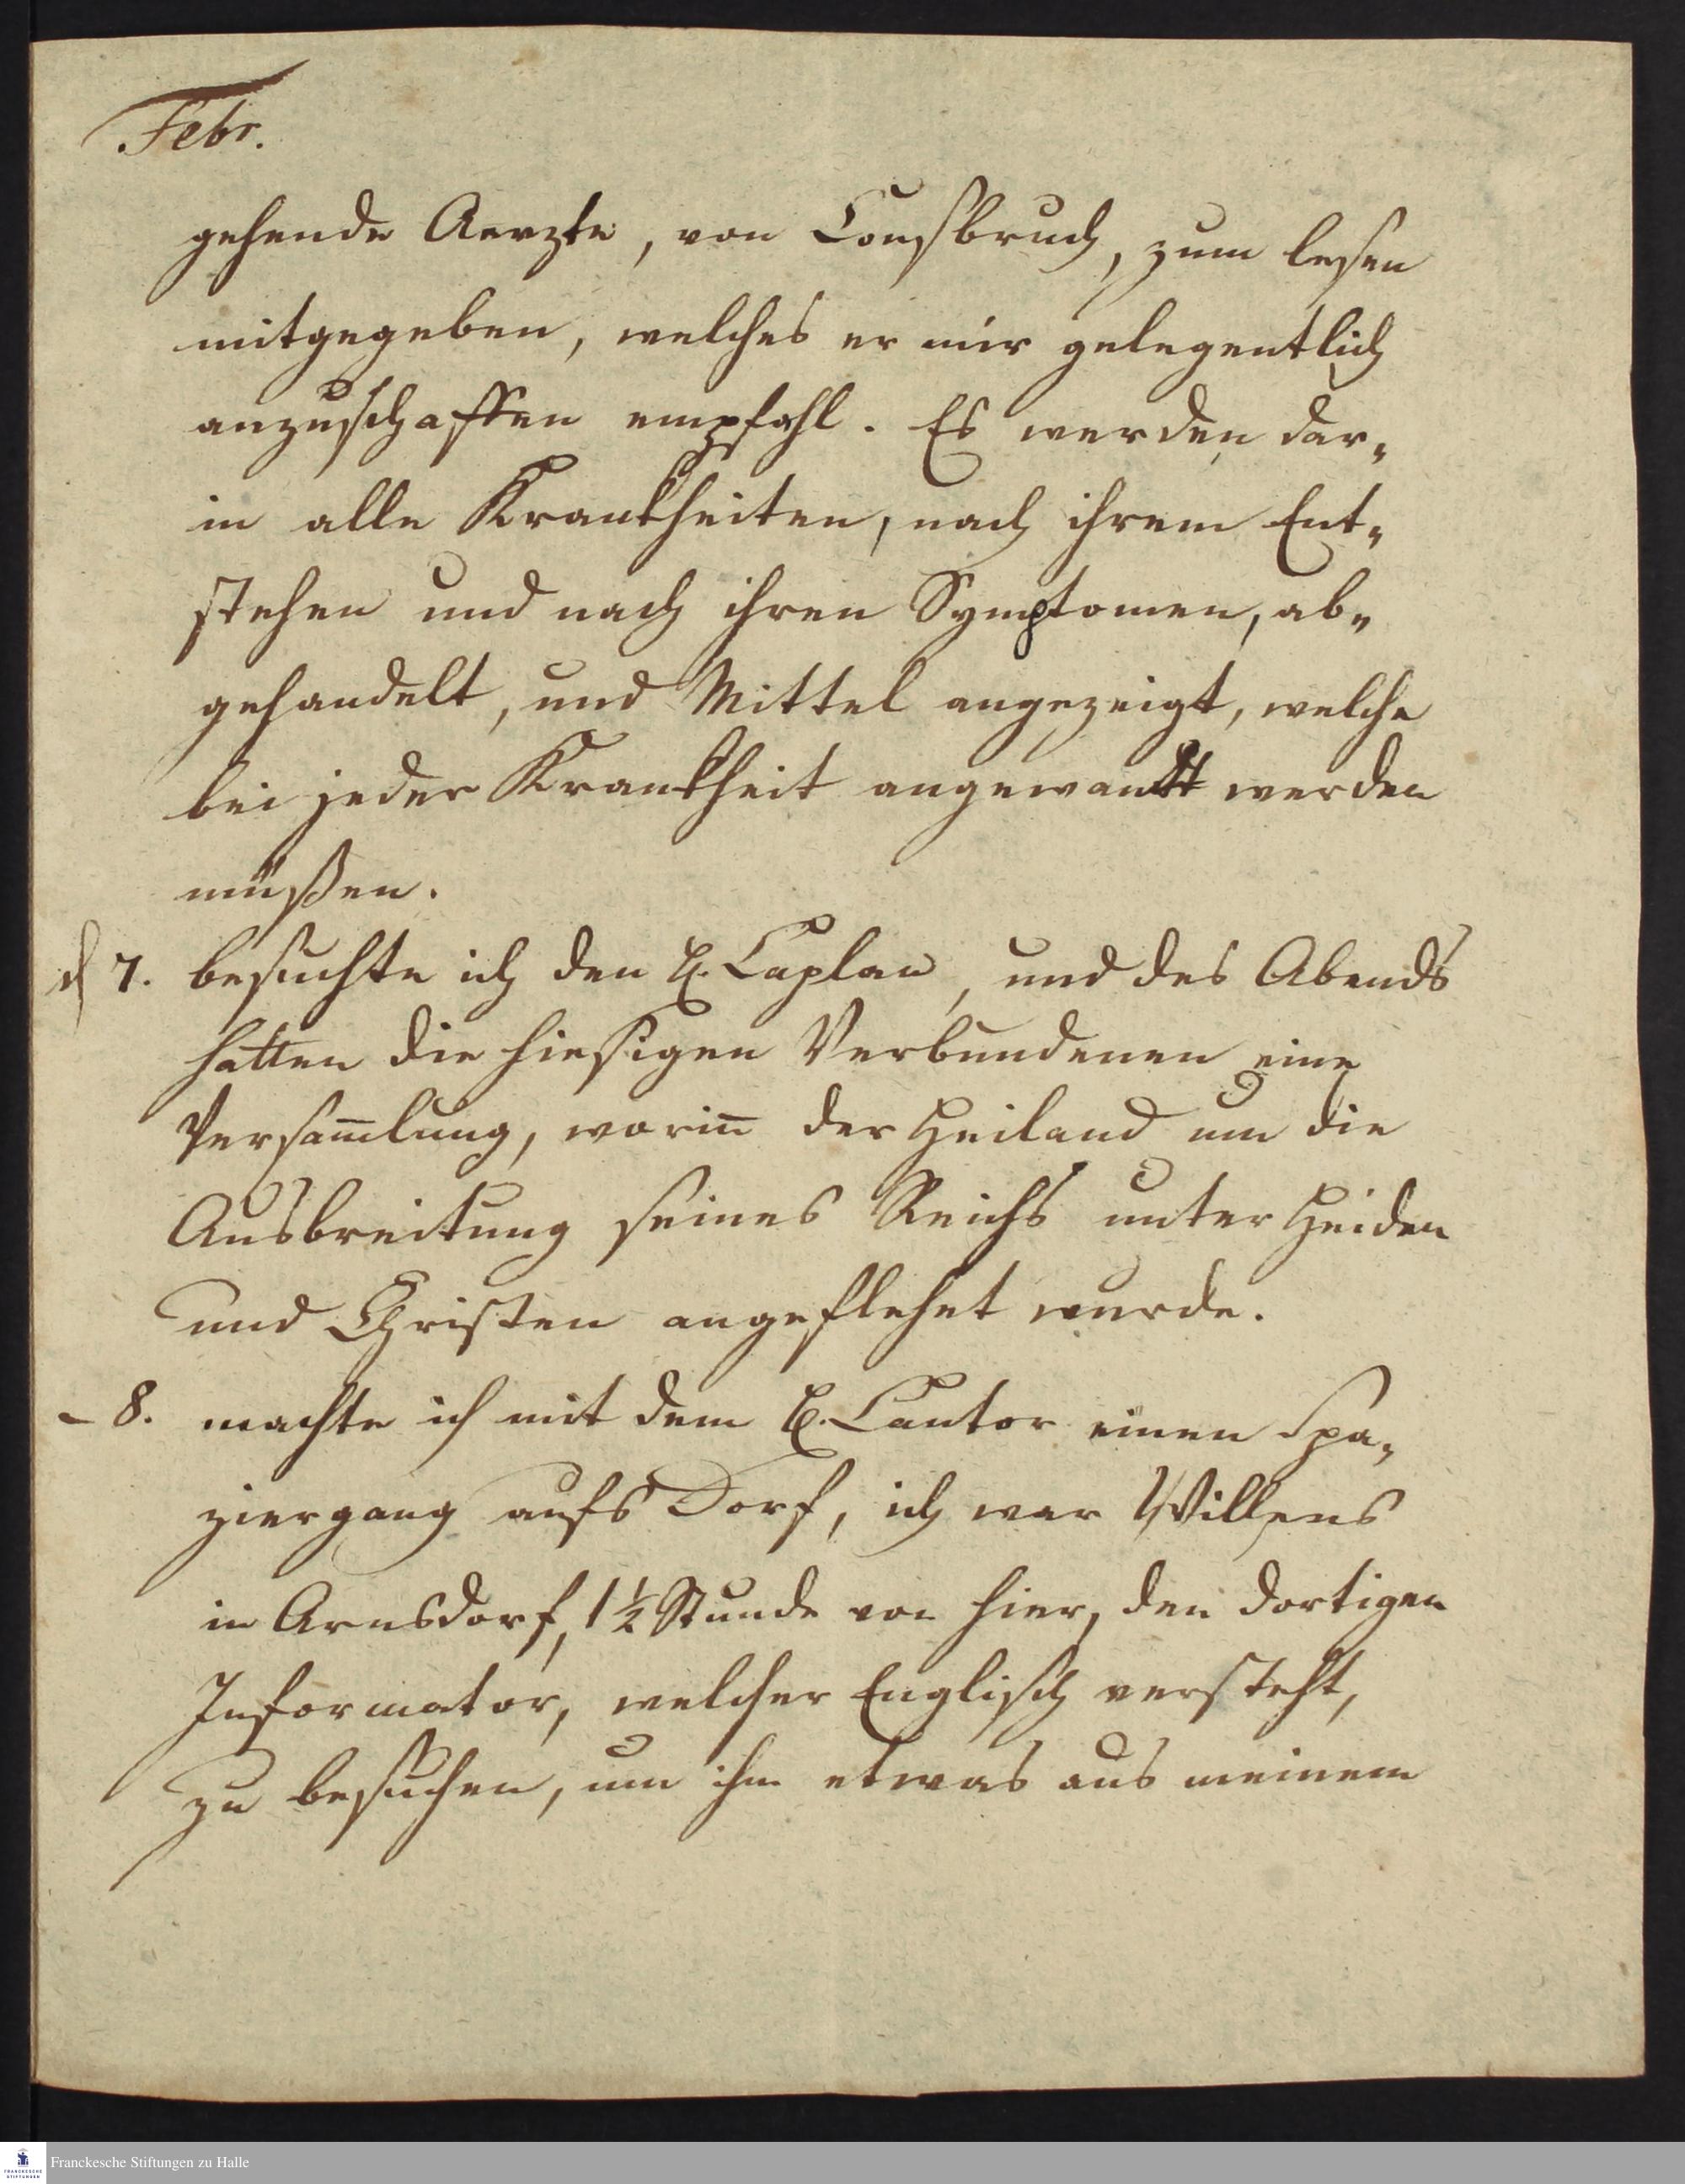 Febr.
gehende Aerzte, von Consbruch, zum lesen
mitgegeben, welches er mir gelegentlich
anzuschaffen empfahl. Es werden dar„
in alle Krankheiten, nach ihrem Ent„
stehen und nach ihren Symptomen, ab„
gehandelt, und Mittel angezeigt, welche
bei jeder Krankheit angewandt werden
müßen.
d 7. besuchte ich den H. Caplan, und des Abends
hatten die hiesigen Verbundenen eine
Versam̅lung, worin̅ der Heiland um die
Ausbreitung seines Reichs unter Heiden
und Christen angeflehet wurde.
– 8. machte ich mit dem H. Cantor einen Spa„
ziergang aufs Dorf, ich war Willens
in Arnsdorf, 1½ Stunde von hier, den dortigen
Informator, welcher Englisch versteht,
zu besuchen, um ihm etwas aus meinem
FRANCKESCHE
STIFTUNGEN
Franckesche Stiftungen zu Halle